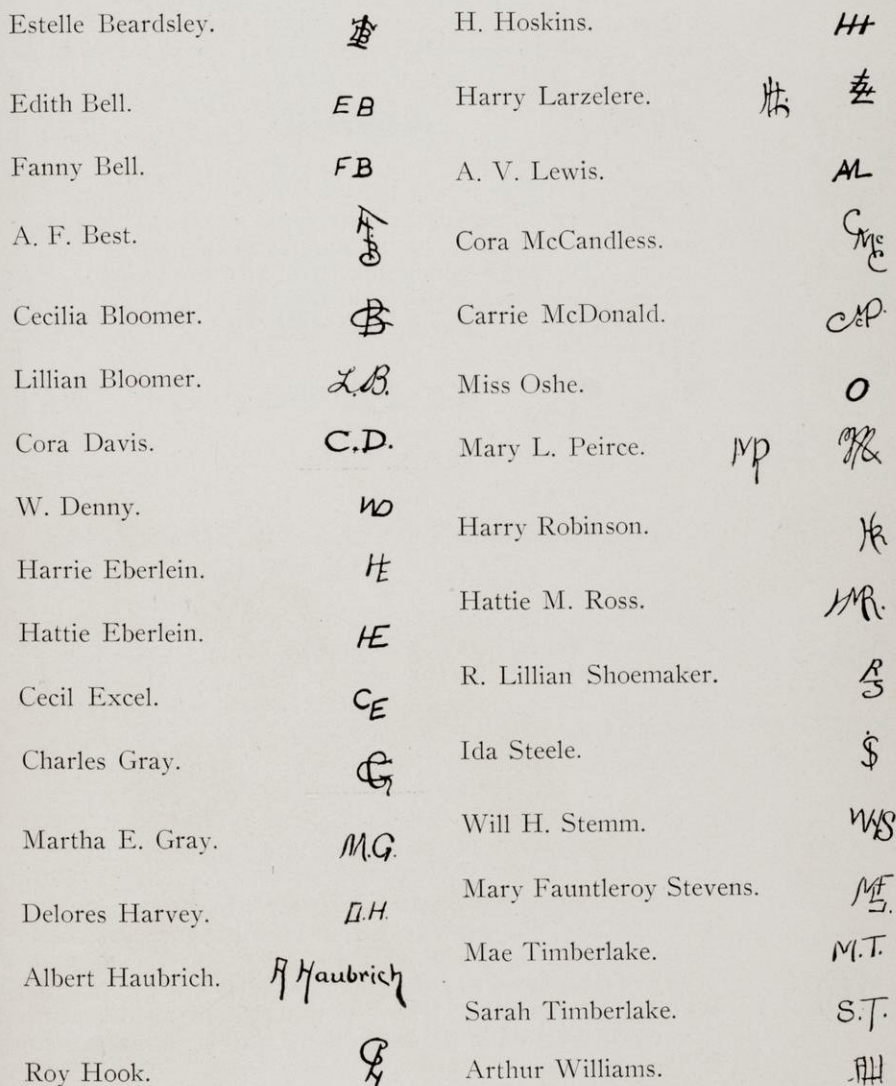 Estelle Beardsley.
Edith Bell. EB
Fanny Bell. FB
A. F. Best.
Cecilia Bloomer. CB
Lillian Bloomer. L.B.
Cora Davis. C.D.
W. Denny. WD
Harrie Eberlein. HE
Hattie Eberlein. HE
Cecil Excel. CE
Charles Gray. CG
Martha E. Gray. M.G.
Delores Harvey. D.H.
Albert Haubrich. A Haubrich
Roy Hook.
H. Hoskins. HH
Harry Larzelere.
A. V. Lewis. AL
Cora McCandless. CMcC
Carrie McDonald. CMcD.
Miss Oshe. O
Mary L. Peirce. MP
Harry Robinson. HR
Hattie M. Ross. HMR.
R. Lillian Shoemaker. RS
Ida Steele.
Will H. Stemm. WHS
Mary Fauntleroy Stevens. MFS.
Mae Timberlake. M.T.
Sarah Timberlake. S.T.
Arthur Williams. AW